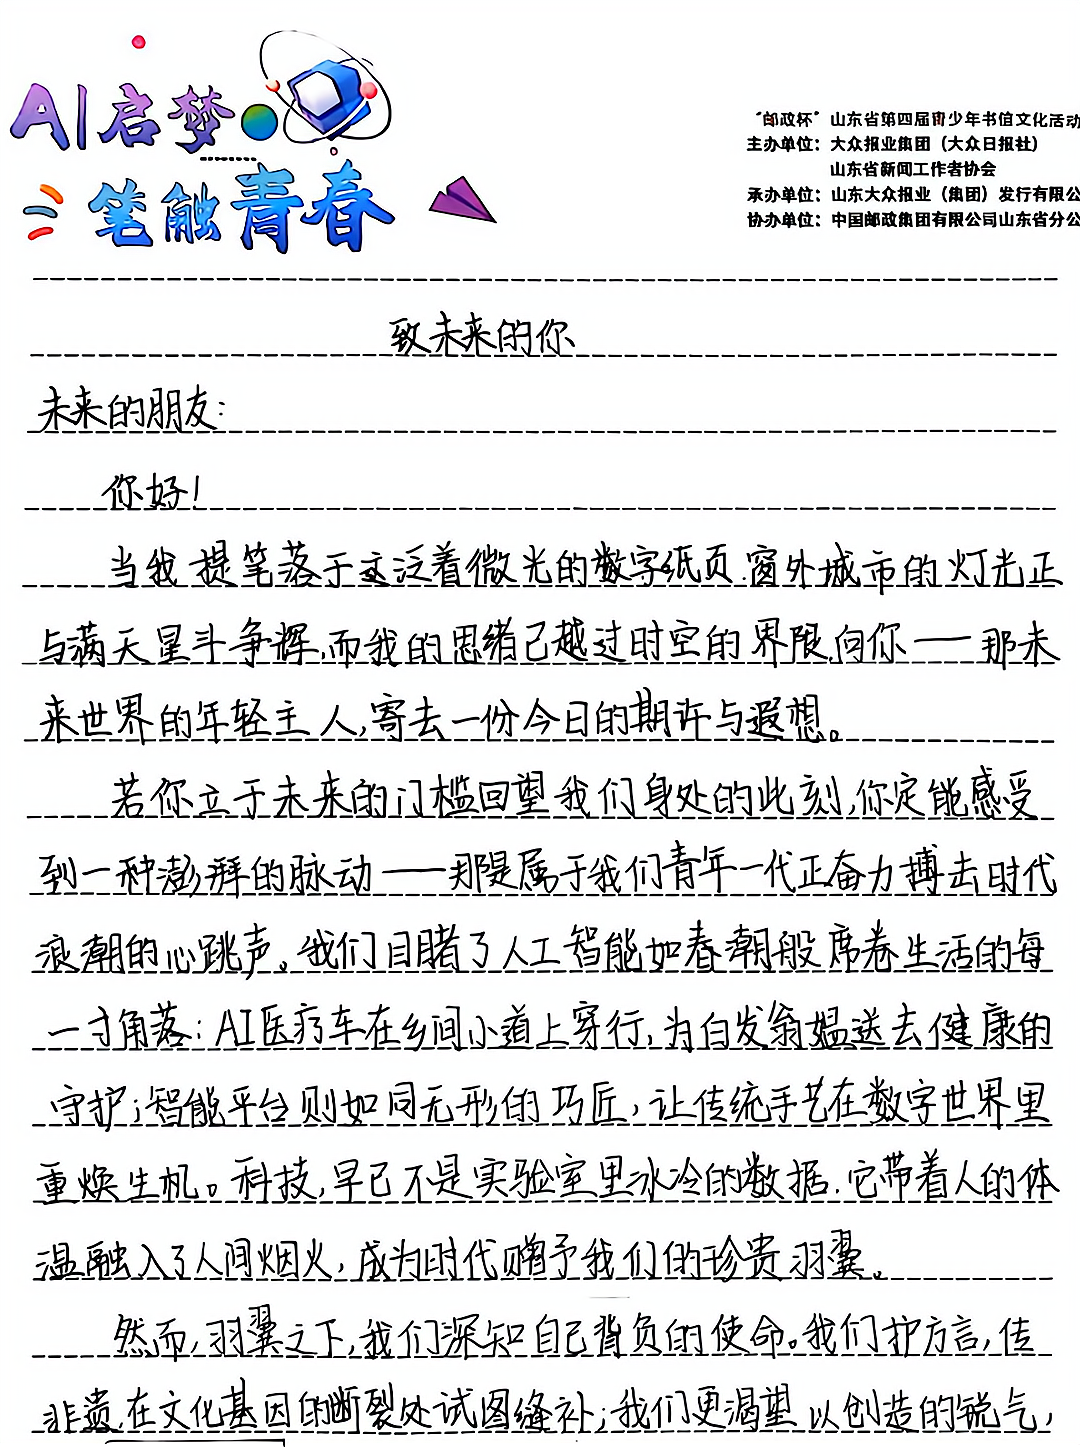 AI启梦
笔触青春
“邮政杯”山东省第四届青少年书信文化活动
主办单位：大众报业集团（大众日报社）
山东省新闻工作者协会
承办单位：山东大众报业（集团）发行有限公
协办单位：中国邮政集团有限公司山东省分公
致未来的你
未来的朋友：
你好！
当我提笔落于这泛着微光的数字纸页，窗外城市的灯光正
与满天星斗争辉，而我的思绪已越过时空的界限，向你——那未
来世界的年轻主人，寄去一份今日的期许与遐想。
若你立于未来的门槛回望我们身处的此刻，你定能感受
到一种澎湃的脉动——那是属于我们青年一代正奋力搏击时代
浪潮的心跳声。我们目睹了人工智能如春潮般席卷生活的每
一寸角落：AI医疗车在乡间小道上穿行，为白发翁媪送去健康的
守护；智能平台则如同无形的巧匠，让传统手艺在数字世界里
重焕生机。科技，早已不是实验室里冰冷的数据，它带着人的体
温融入了人间烟火，成为时代赠予我们的珍贵羽翼。
然而，羽翼之下，我们深知自己背负的使命。我们护方言，传
非遗，在文化基因的断裂处试图缝补；我们更渴望以创造的锐气，